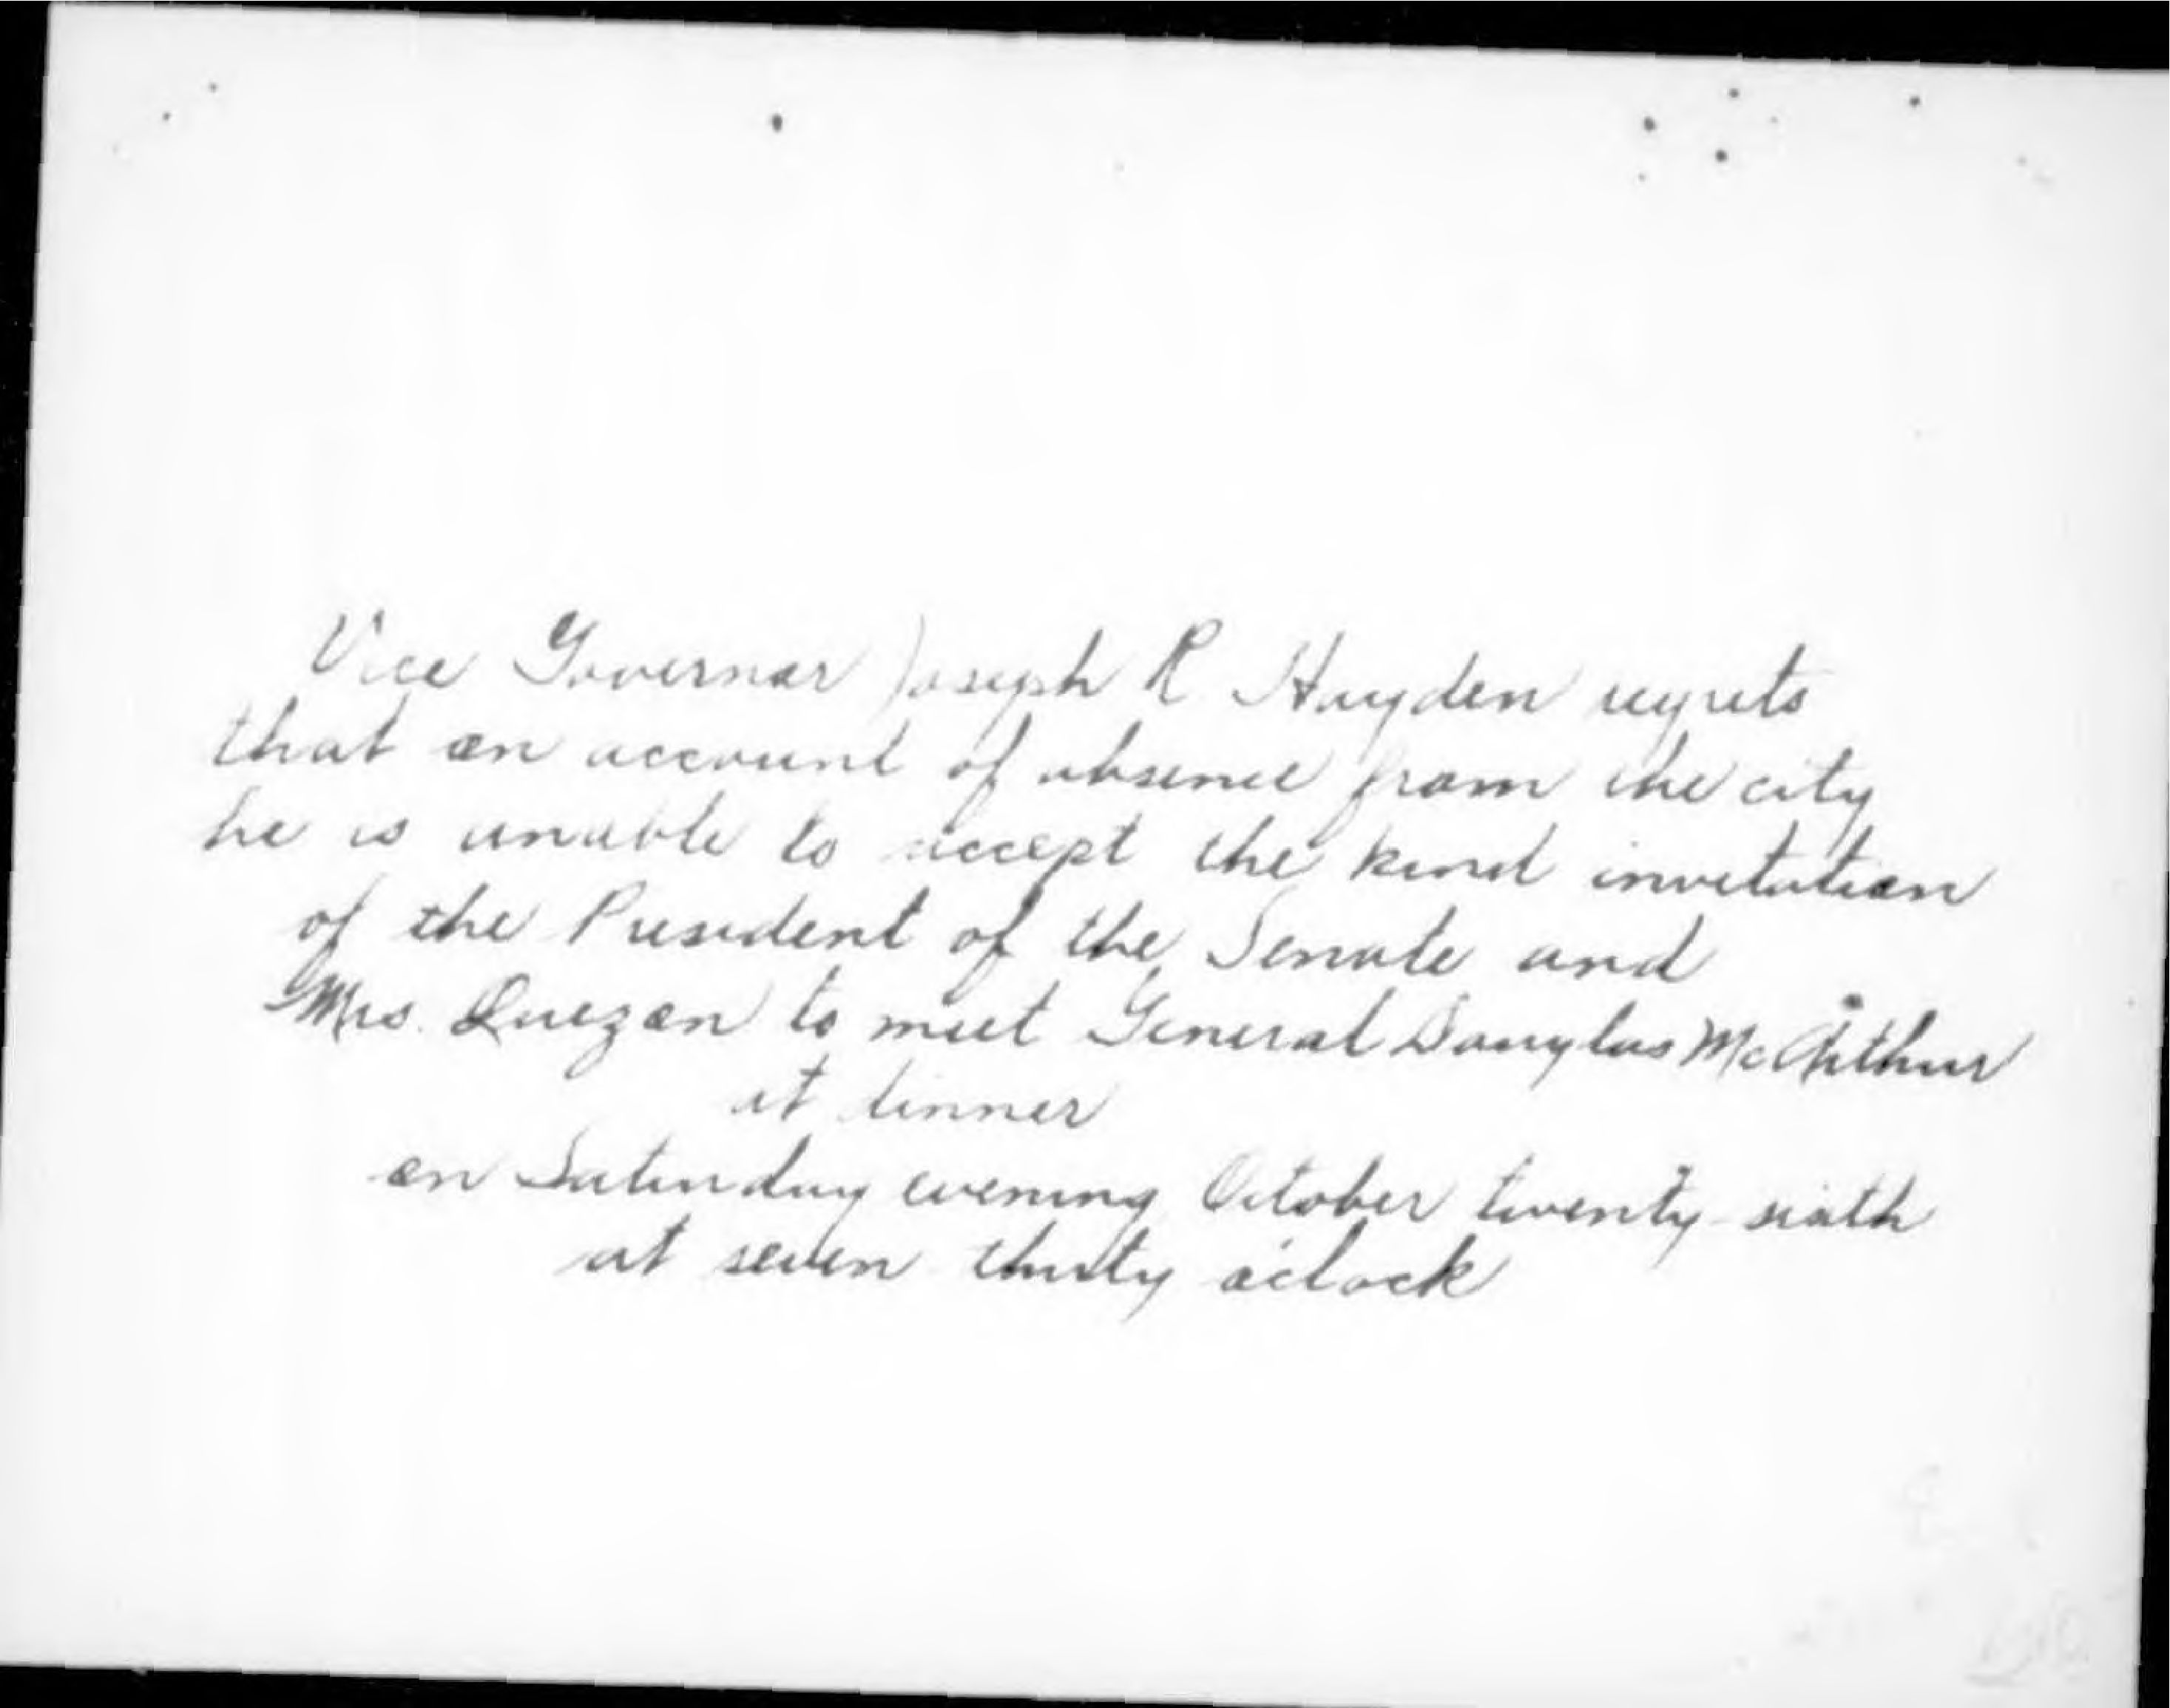 Vice Governor Joseph R Hayden regrets
that on account of absence from the city
he is unable to accept the kind invitation
of the President of the Senate and
Mrs. Quezon to meet General Douglas McArthur
at dinner
on Saturday evening October twenty-sixth
at seven thirty o'clock